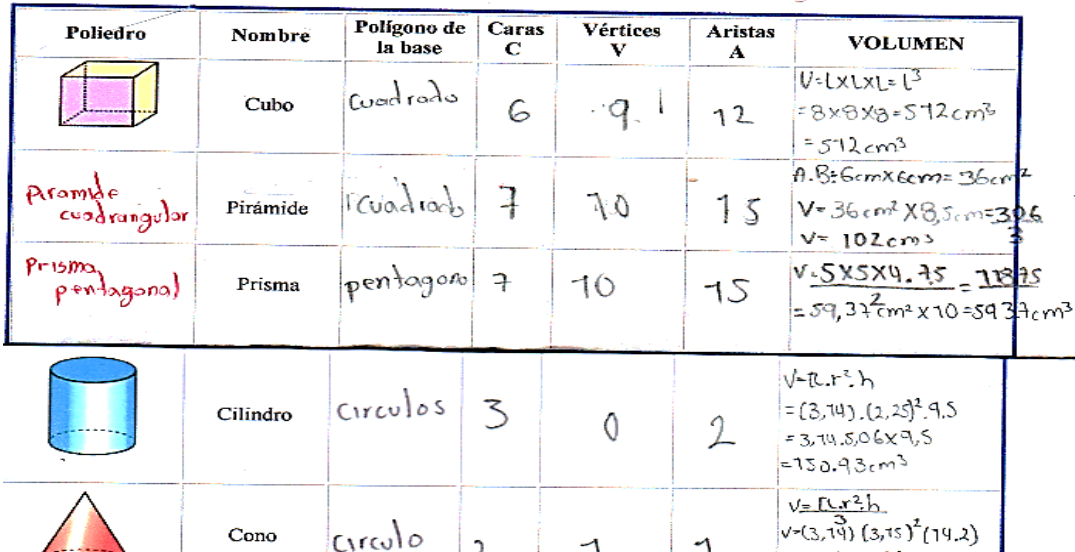 Poliedro Nombre Polígono de la base Caras C Vértices V Aristas A VOLUMEN
Cubo Cuadrado 6 9 12
V=LxLxL=L³
=8x8x8=512cm³
=512cm³
Piramide cuadrangular Pirámide cuadrado 7 10 15
A.B=6cmx6cm=36cm²
V=36cm²x8,5cm=306
3
V=102cm³
Prisma pentagonal Prisma pentagono 7 10 15
V=5x5x4.75=11875
2
=59,37cm²x10=5937cm³
Cilindro circulos 3 0 2
V=π.r².h
=(3,14).(2,25)².9,5
=3,14.5,06x9,5
=150.93cm³
Cono circulo 2 1 1
V=π.r².h
3
V=(3,14)(3,75)²(14.2)